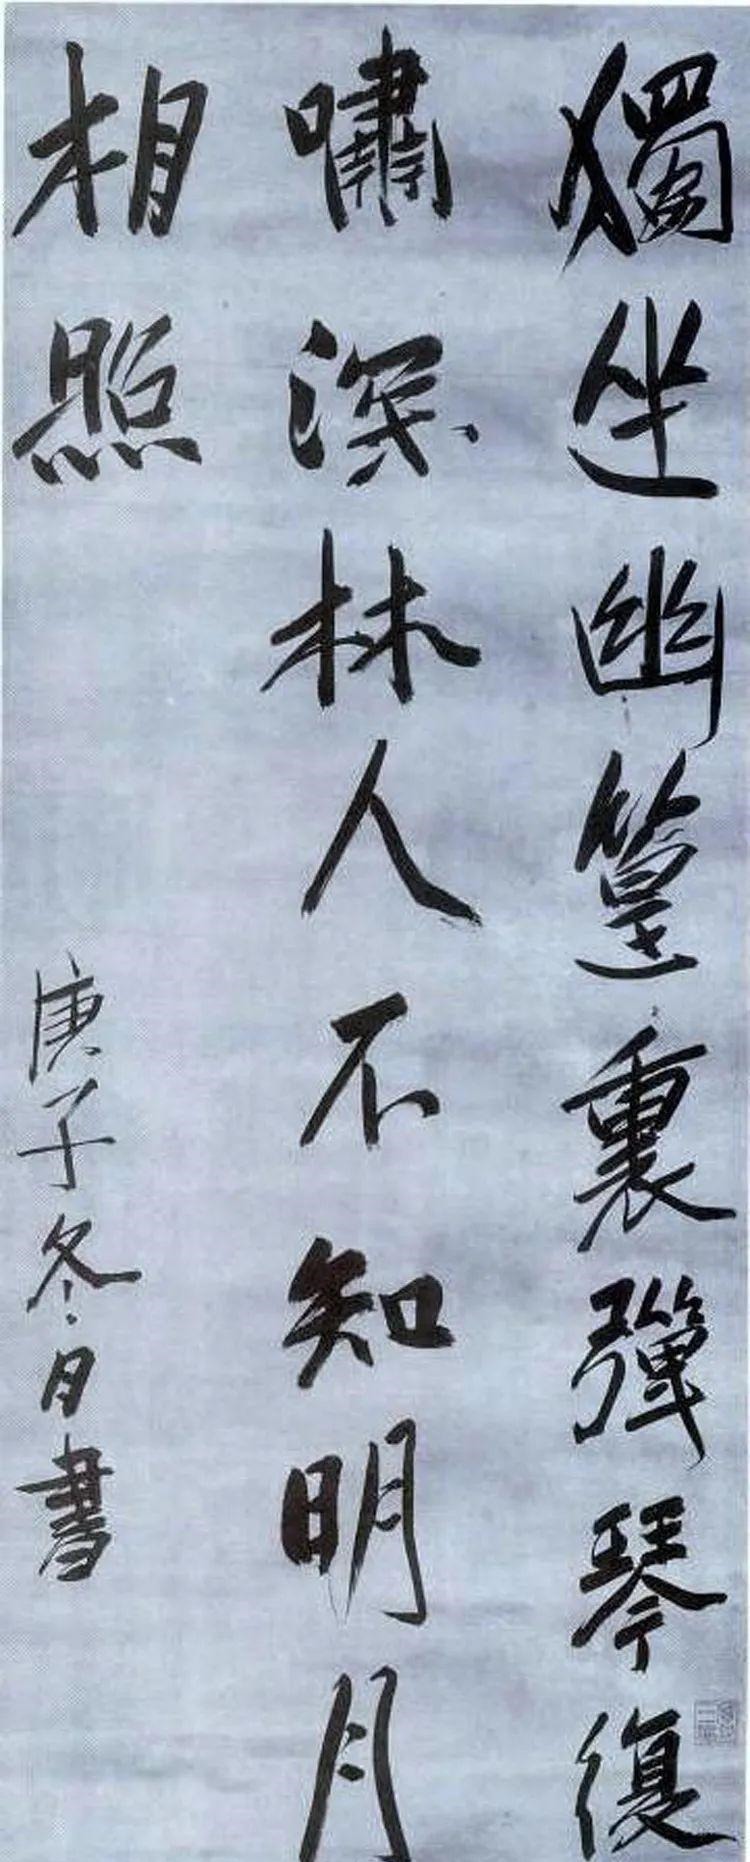 獨坐幽篁裏彈琴復
嘯深林人不知明月
相照
庚子冬月書